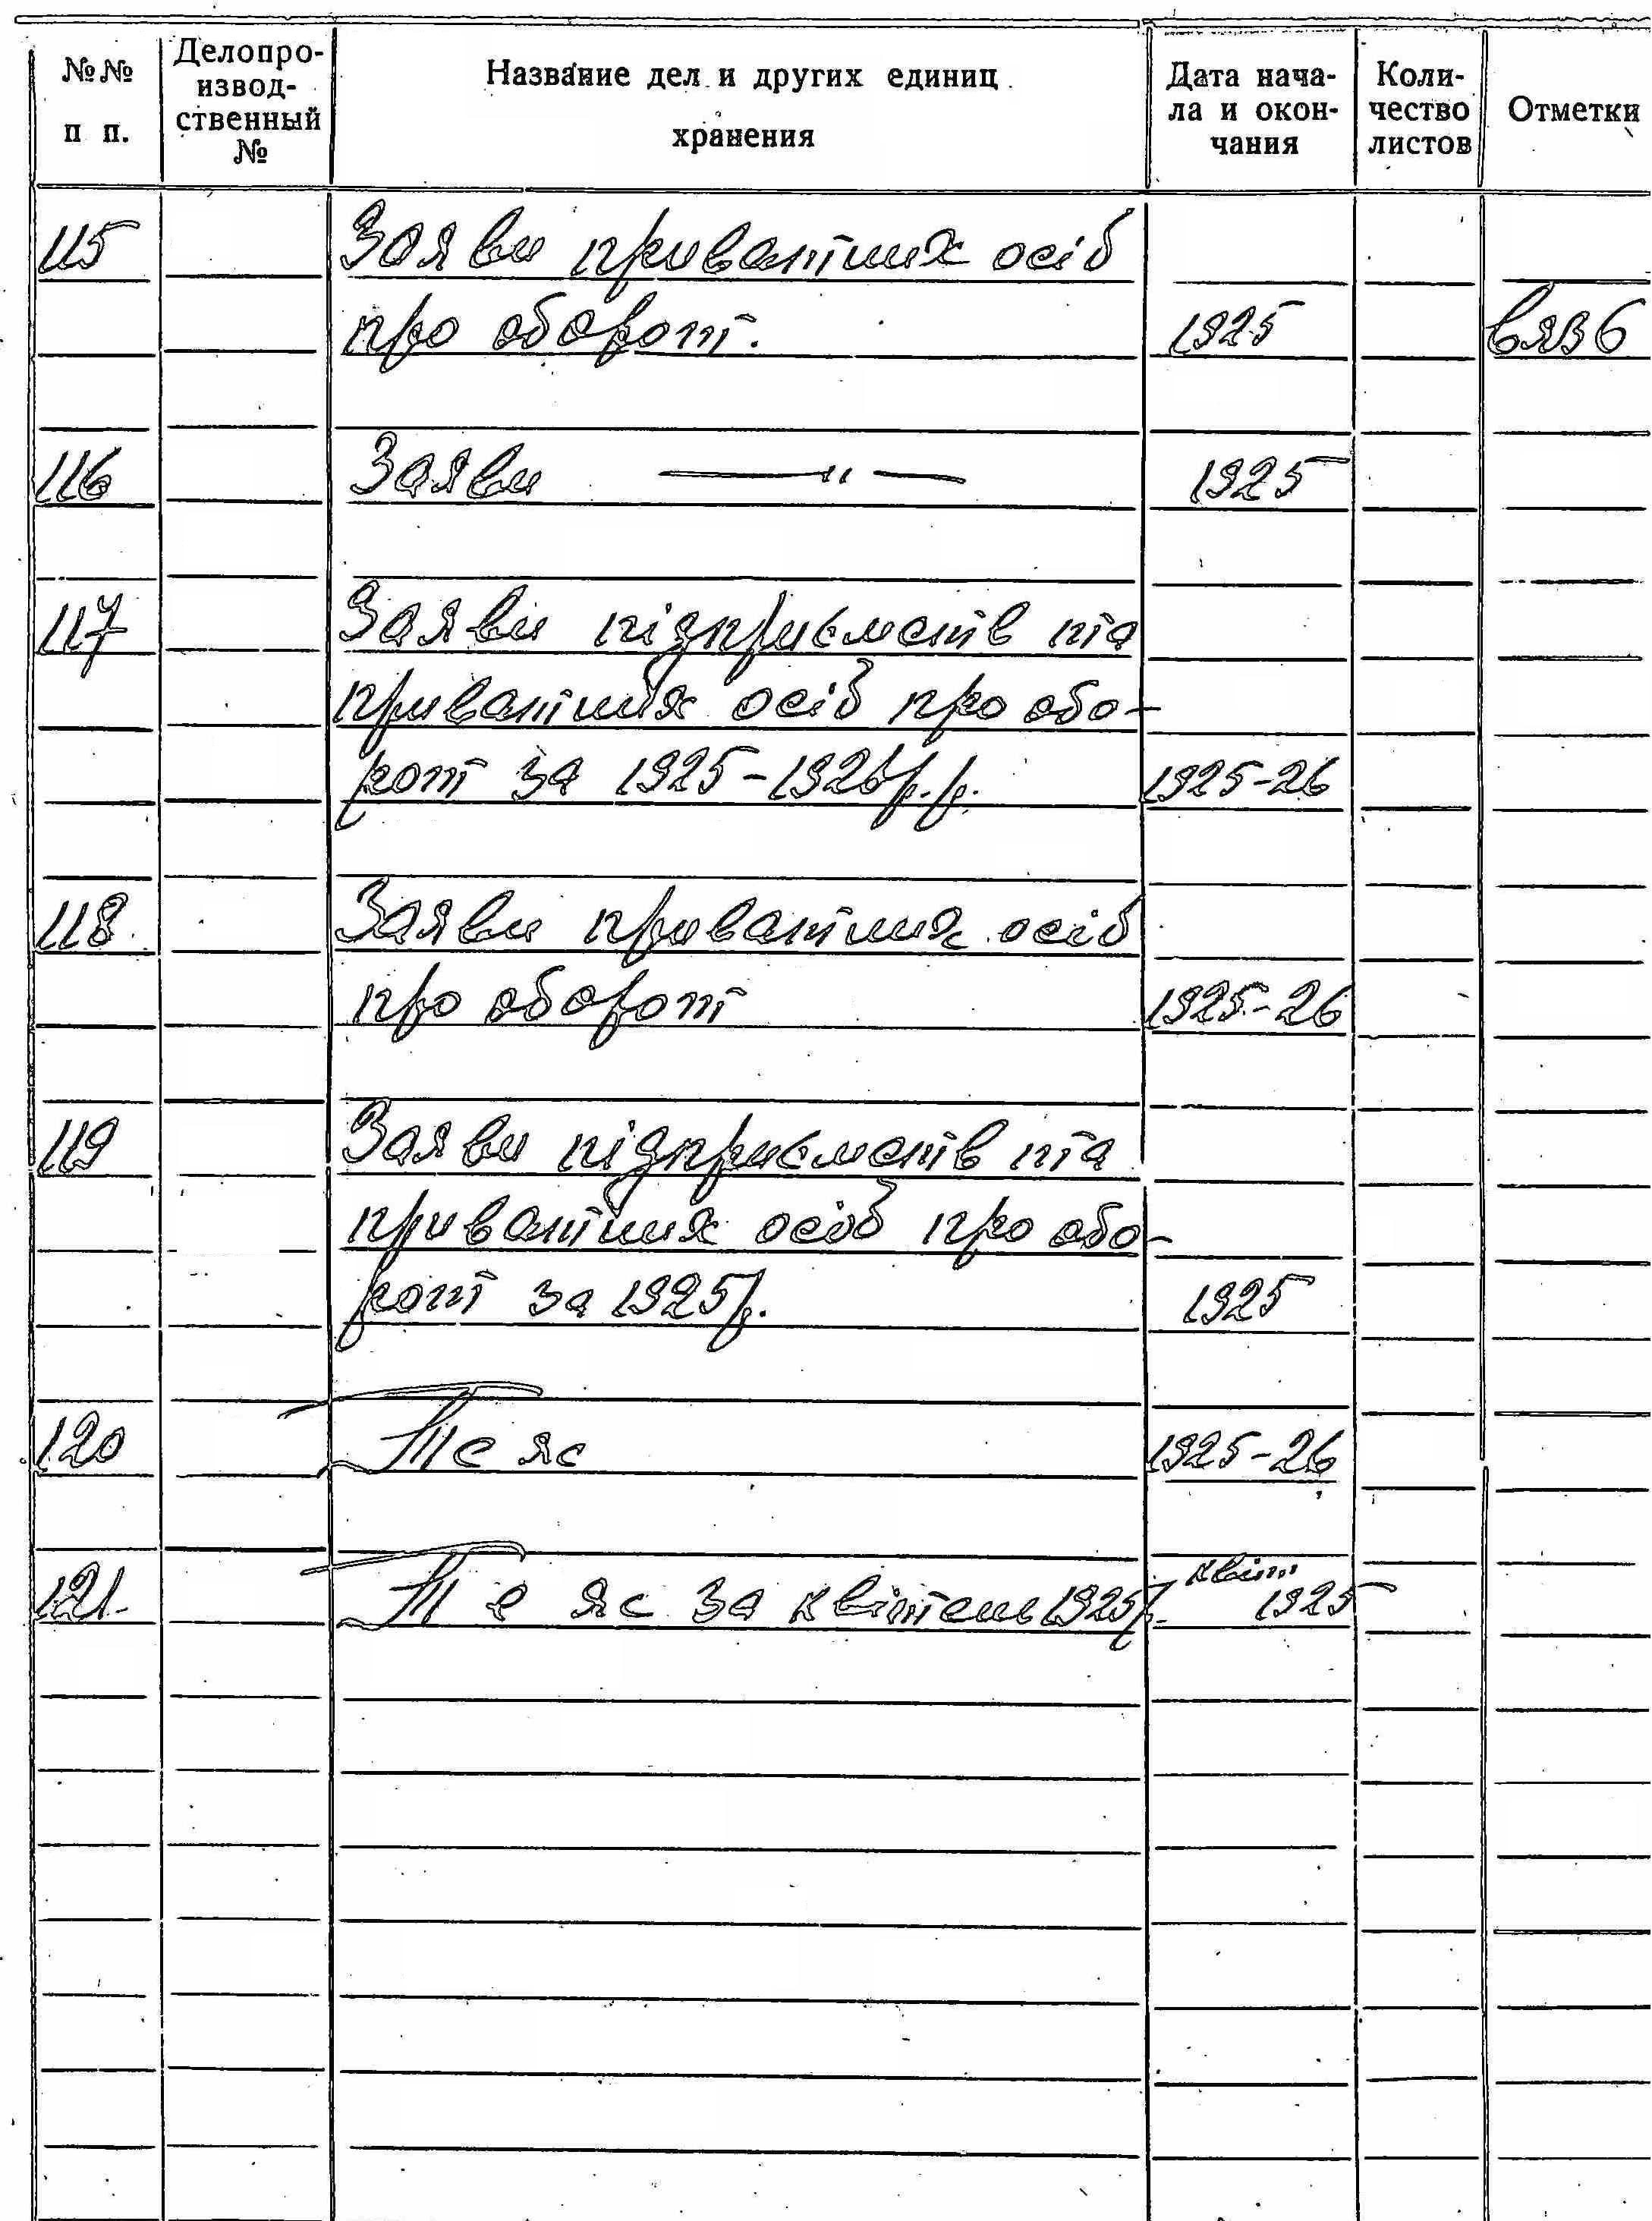 №№ п п. Делопро-изво­д-ственный № Название дел и других единиц хранения Дата нача-ла и окон-чания Коли-чество листов Отметки
115 Заяви приватних осіб
про оборот. 1925 Вяз 6
116 Заяви —"— 1925
117 Заяви підприємств та
приватних осіб про обо-
рот за 1925-1926 р.р. 1925-26
118 Заяви приватних осіб
про оборот 1925-26
119 Заяви підприємств та
приватних осіб про обо-
рот за 1925 р. 1925
120 Те яс 1925-26
121. Те яс за квітень 1925 р. квіт 1925